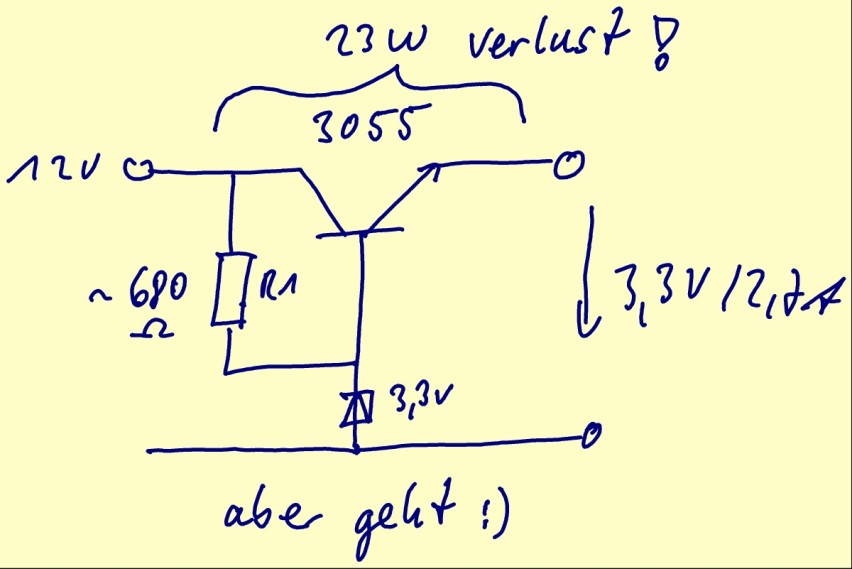 23W verlust!
3055
12V
~680
Ω
R1
3,3V/2,7A
3,3V
aber geht :)